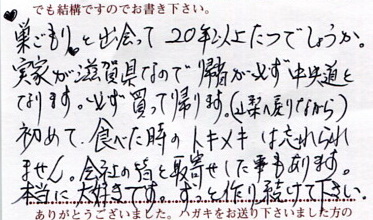 でも結構ですのでお書き下さい。
巣ごもりと出会って20年以上たつでしょうか。
実家が滋賀県なので帰省が必ず中央道と
なります。必ず買って帰ります。(山梨へ戻りながら)
初めて、食べた時のトキメキは忘れられ
ません。会社の皆と取寄せした事もあります。
本当に大好きです。ずっと作り続けて下さい。
ありがとうございました。ハガキをお送り下さいました方の